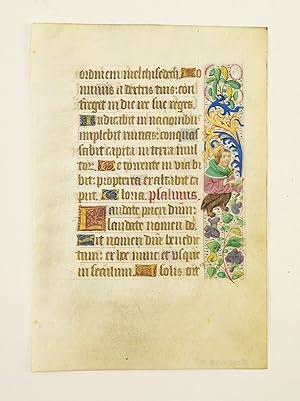 ordinem melchisedech. Do
minus a dextris tuis: con
fregit in die ire sue reges.
Iudicabit in nacionibus
implebit ruinas: conquas
sabit capita in terra mul
tor. De torrente in via bi
bet: propterea exaltabit ca
put. Gloria. psalmus.
Laudate pueri dnm:
laudate nomen dni.
Sit nomen dni benedic
tum: ex hoc nunc et usque
in seculum. A solis ort